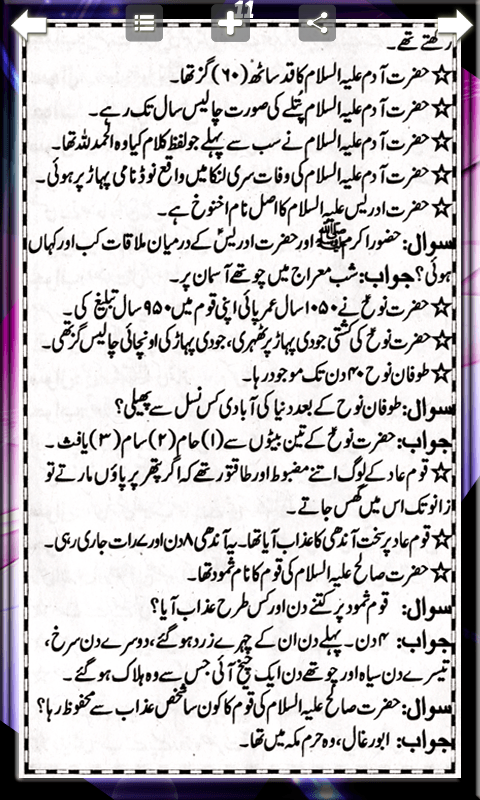 11
رکھتے تھے۔
☆ حضرت آدم علیہ السلام کا قد ساٹھ (۶۰) گز تھا۔
☆ حضرت آدم علیہ السلام پُتلے کی صورت چالیس سال تک رہے۔
☆ حضرت آدم علیہ السلام نے سب سے پہلے جو لفظ کلام کیا وہ الحمد للہ تھا۔
☆ حضرت آدم علیہ السلام کی وفات سری لنکا میں واقع نوڈ نامی پہاڑ پر ہوئی۔
☆ حضرت ادریس علیہ السلام کا اصل نام اخنوخ ہے۔
سوال: حضور اکرم ﷺ اور حضرت ادریسؑ کے درمیان ملاقات کب اور کہاں
ہوئی؟ جواب: شب معراج میں چوتھے آسمان پر۔
☆ حضرت نوحؑ نے ۱۰۵۰ سال عمر پائی اپنی قوم میں ۹۵۰ سال تبلیغ کی۔
☆ حضرت نوحؑ کی کشتی جودی پہاڑ پر ٹھہری، جودی پہاڑ کی اونچائی چالیس گز تھی۔
☆ طوفان نوح ۴۰ دن تک موجود رہا۔
سوال: طوفان نوح کے بعد دنیا کی آبادی کس نسل سے پھیلی؟
جواب: حضرت نوحؑ کے تین بیٹوں سے (۱) حام (۲) سام (۳) یافث۔
☆ قوم عاد کے لوگ اتنے مضبوط اور طاقتور تھے کہ اگر پتھر پر پاؤں مارتے تو
زانو تک اس میں گھس جاتے۔
☆ قوم عاد پر سخت آندھی کا عذاب آیا تھا۔ یہ آندھی ۸ دن اور ۷ رات جاری رہی۔
☆ حضرت صالح علیہ السلام کی قوم کا نام ثمود تھا۔
سوال: قوم ثمود پر کتنے دن اور کس طرح عذاب آیا؟
جواب: ۴ دن۔ پہلے دن ان کے چہرے زرد ہو گئے، دوسرے دن سرخ،
تیسرے دن سیاہ اور چوتھے دن ایک چیخ آئی جس سے وہ ہلاک ہو گئے۔
سوال: حضرت صالح علیہ السلام کی قوم کا کون سا شخص عذاب سے محفوظ رہا؟
جواب: ابورغال، وہ حرم مکہ میں تھا۔